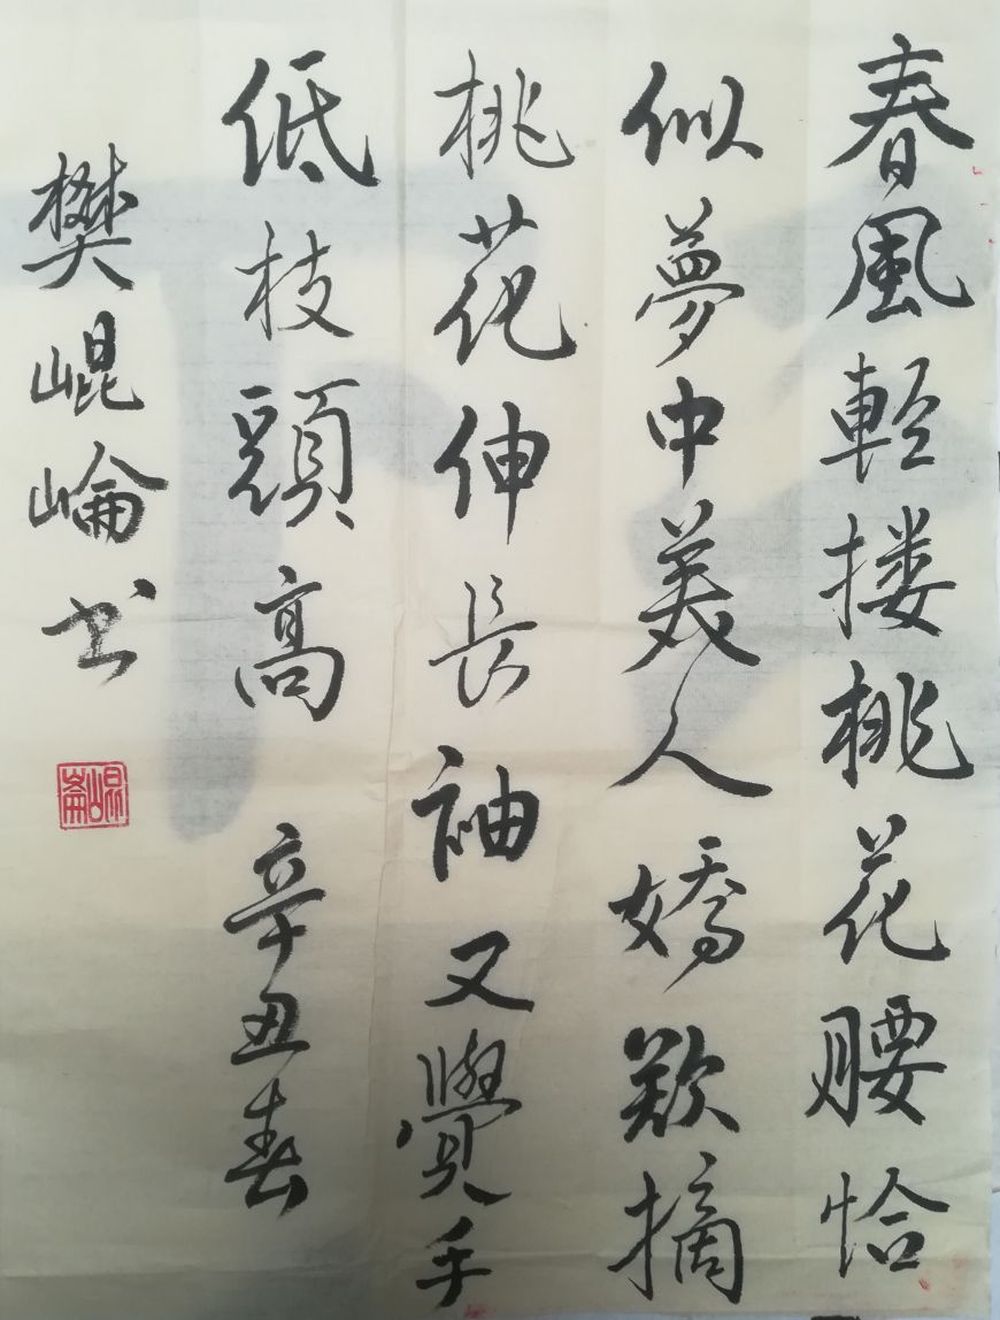 春風輕搂桃花腰恰
似夢中美人嬌歎摘
桃花伸長袖又覺手
低枝頭高 辛丑春
樊崐崘书
崐崘